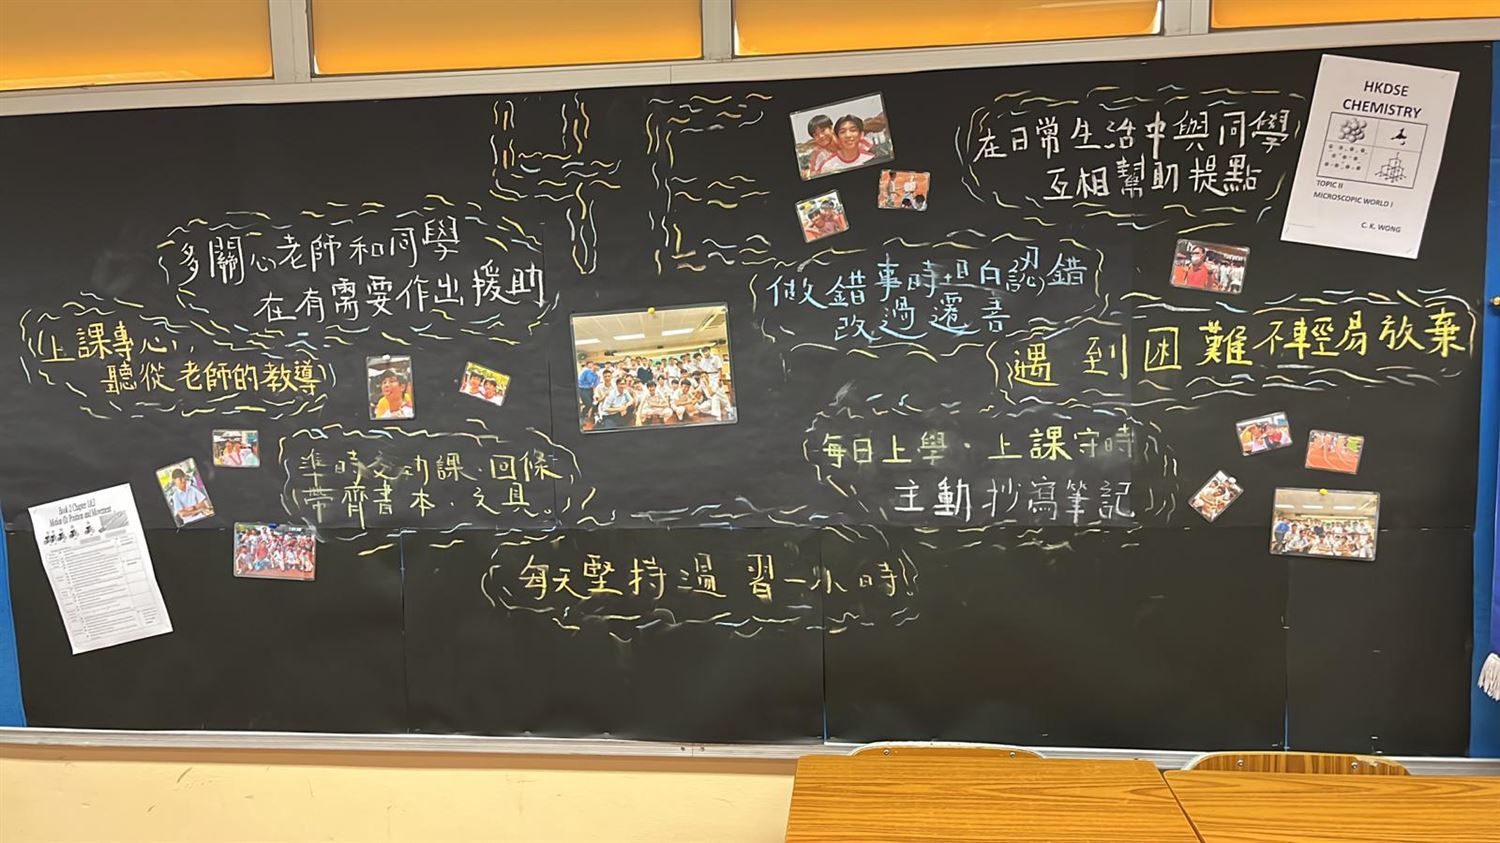 4E
多關心老師和同學
在有需要作出援助
上課專心,
聽從老師的教導
準時交功課、回條,
帶齊書本、文具。
每天堅持溫習一小時!
在日常生活中與同學
互相幫助提點
做錯事時坦白認錯
改過還善
遇到困難不輕易放棄
每日上學、上課守時
主動抄寫筆記
HKDSE
CHEMISTRY
TOPIC II
MICROSCOPIC WORLD I
C. K. WONG
Book 2 Chapter 1&2
Motion I: Position and Movement